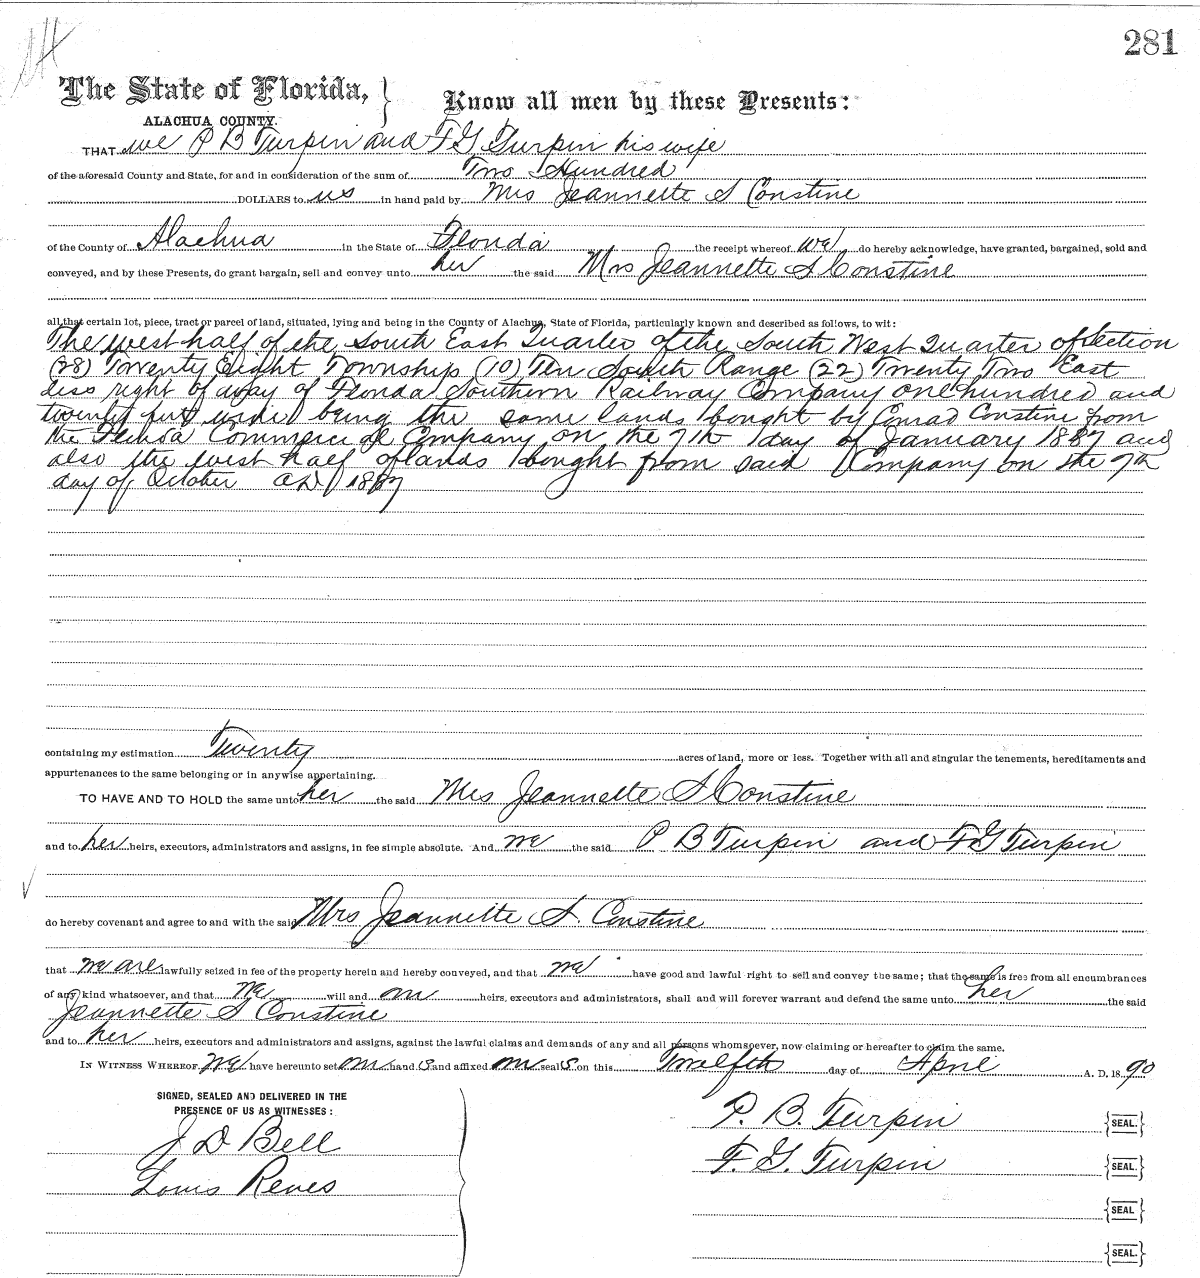 281
The State of Florida, }
ALACHUA COUNTY.
Know all men by these Presents:
THAT we P B Turpin and F G Turpin his wife
of the aforesaid County and State, for and in consideration of the sum of Two Hundred
DOLLARS to us in hand paid by Mrs Jeannette S Constine
of the County of Alachua in the State of Florida the receipt whereof we do hereby acknowledge, have granted, bargained, sold and
conveyed, and by these Presents, do grant bargain, sell and convey unto her the said Mrs Jeannette S Constine
all that certain lot, piece, tract or parcel of land, situated, lying and being in the County of Alachua, State of Florida, particularly known and described as follows, to wit:
The west half of the South East Quarter of the South West Quarter of Section
(28) Twenty Eight Township (10) Ten South Range (22) Twenty Two East
less right of way of Florida Southern Railway Company one hundred and
twenty feet wide being the same lands bought by Conrad Constine from
the Florida Commercial Company on the 7th day of January 1887 and
also the west half of lands bought from said Company on the 7th
day of October AD 1887
containing my estimation Twenty acres of land, more or less. Together with all and singular the tenements, hereditaments and
appurtenances to the same belonging or in anywise appertaining.
TO HAVE AND TO HOLD the same unto her the said Mrs Jeannette S Constine
and to her heirs, executors, administrators and assigns, in fee simple absolute. And we the said P B Turpin and F G Turpin
do hereby covenant and agree to and with the said Mrs Jeannette S. Constine
that we are lawfully seized in fee of the property herein and hereby conveyed, and that we have good and lawful right to sell and convey the same; that the same is free from all encumbrances
of any kind whatsoever, and that we will and our heirs, executors and administrators, shall and will forever warrant and defend the same unto her the said
Jeannette S Constine
and to her heirs, executors and administrators and assigns, against the lawful claims and demands of any and all persons whomsoever, now claiming or hereafter to claim the same.
IN WITNESS WHEREOF, we have hereunto set our hand s and affixed our seal s on this Twelfth day of April A. D. 18 90
SIGNED, SEALED AND DELIVERED IN THE
PRESENCE OF US AS WITNESSES:
J D Bell
Louis Reves
P. B. Turpin {SEAL.}
F. G. Turpin {SEAL.}
{SEAL.}
{SEAL.}